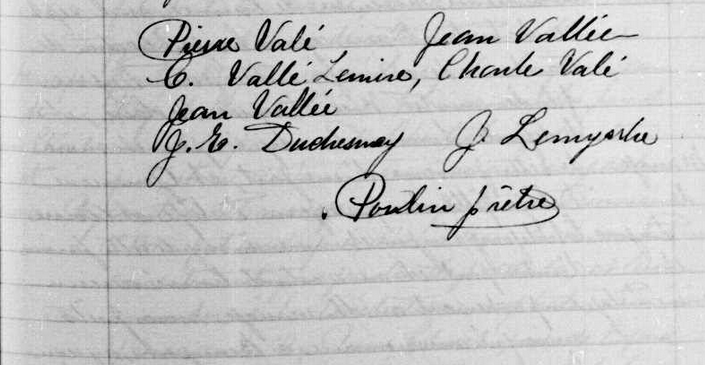 Pierre Valé Jean Vallée
C. Vallé Lemire, Charle Valé
Jean Vallée
J. E. Duchesnay J. Lemyre
Poulin prêtre